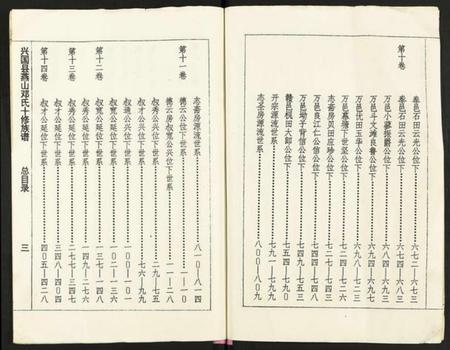 第十卷
奉邑石田云光公位下……六七二—六七三
奉邑石田云光公位下……六七四—六八三
万邑小蓼振爵公位下……六八四—六九三
万邑斗文滩良鲁公位下……六九四—六九七
万邑优田玉华公位下……六九八—七二三
万邑嘉塘下世坚公位下……七二四—七二六
志斋房凤田应珍公位下……七二七—七四三
万邑良江仁公信公位下……七四四—七四八
万邑坳子背信公位下……七四九—七五三
赣邑枧田大郎公位下……七五四—七九〇
开宗源流世系……七九一—七九九
志圣房源流世系……八〇〇—八〇九
志斋房源流世系……八一〇—八一四
第十一卷
德云公位下世系……一—一〇
德云房叔宽公兴位下世系……一一—二八
叔秀公兴位下世系……二九—七五
叔才公兴位下世系……七六—九九
叔逸公兴位下世系……一〇〇—一〇一
叔宽公延位下世系……一〇二—一三六
第十二卷
叔宽公延位下世系……一三七—一四八
叔秀公延位下世系……一四九—二七六
第十三卷
叔秀公延位下世系……二七七—三四七
叔才公延位下世系……三四八—四〇四
第十四卷
叔才公延位下世系……四〇五—四二八
兴国县燕山邓氏十修族谱 总目录 三